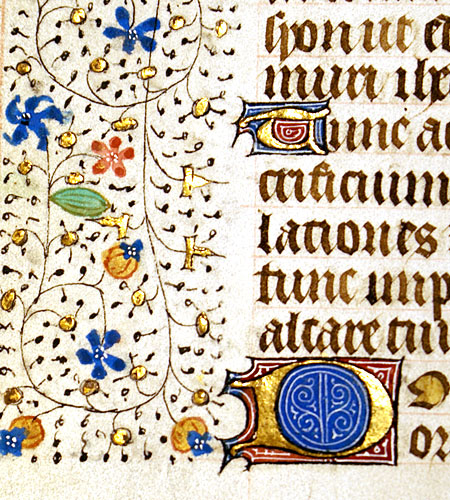 syon ut ed
muri ihe
Tunc ac
crificium
lationes
tunc imp
altare tuu
DO
or